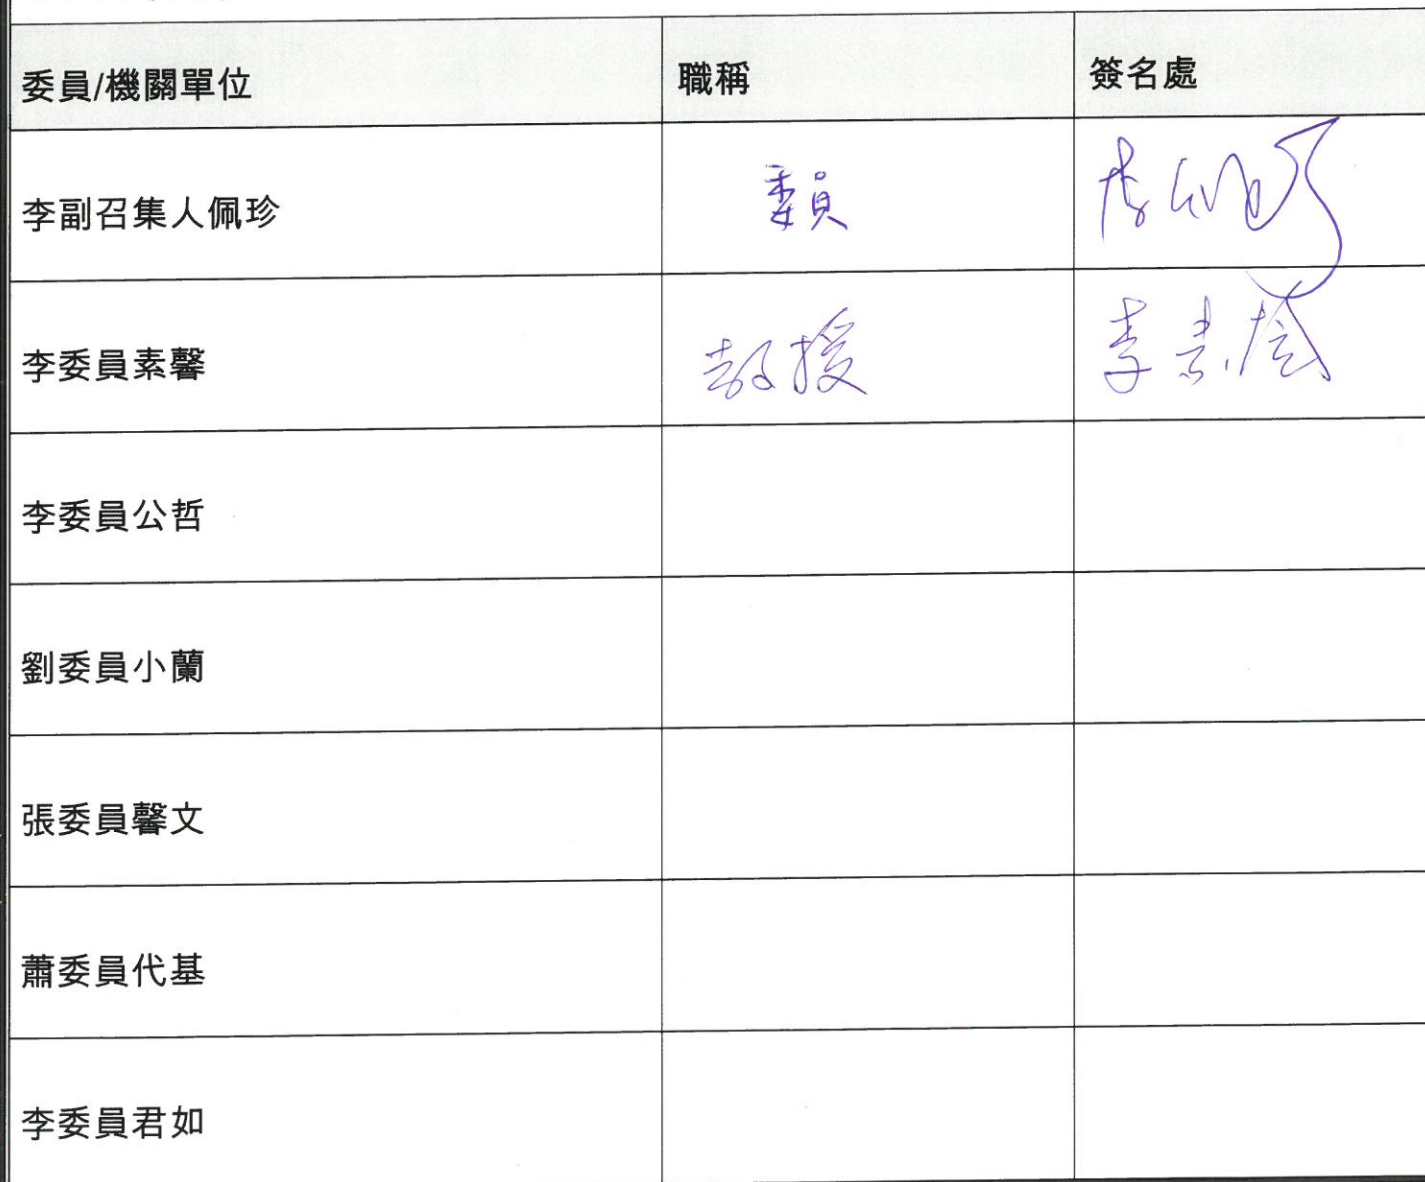 委員/機關單位 職稱 簽名處
李副召集人佩珍 委員 李佩珍
李委員素馨 教授 李素馨
李委員公哲
劉委員小蘭
張委員馨文
蕭委員代基
李委員君如